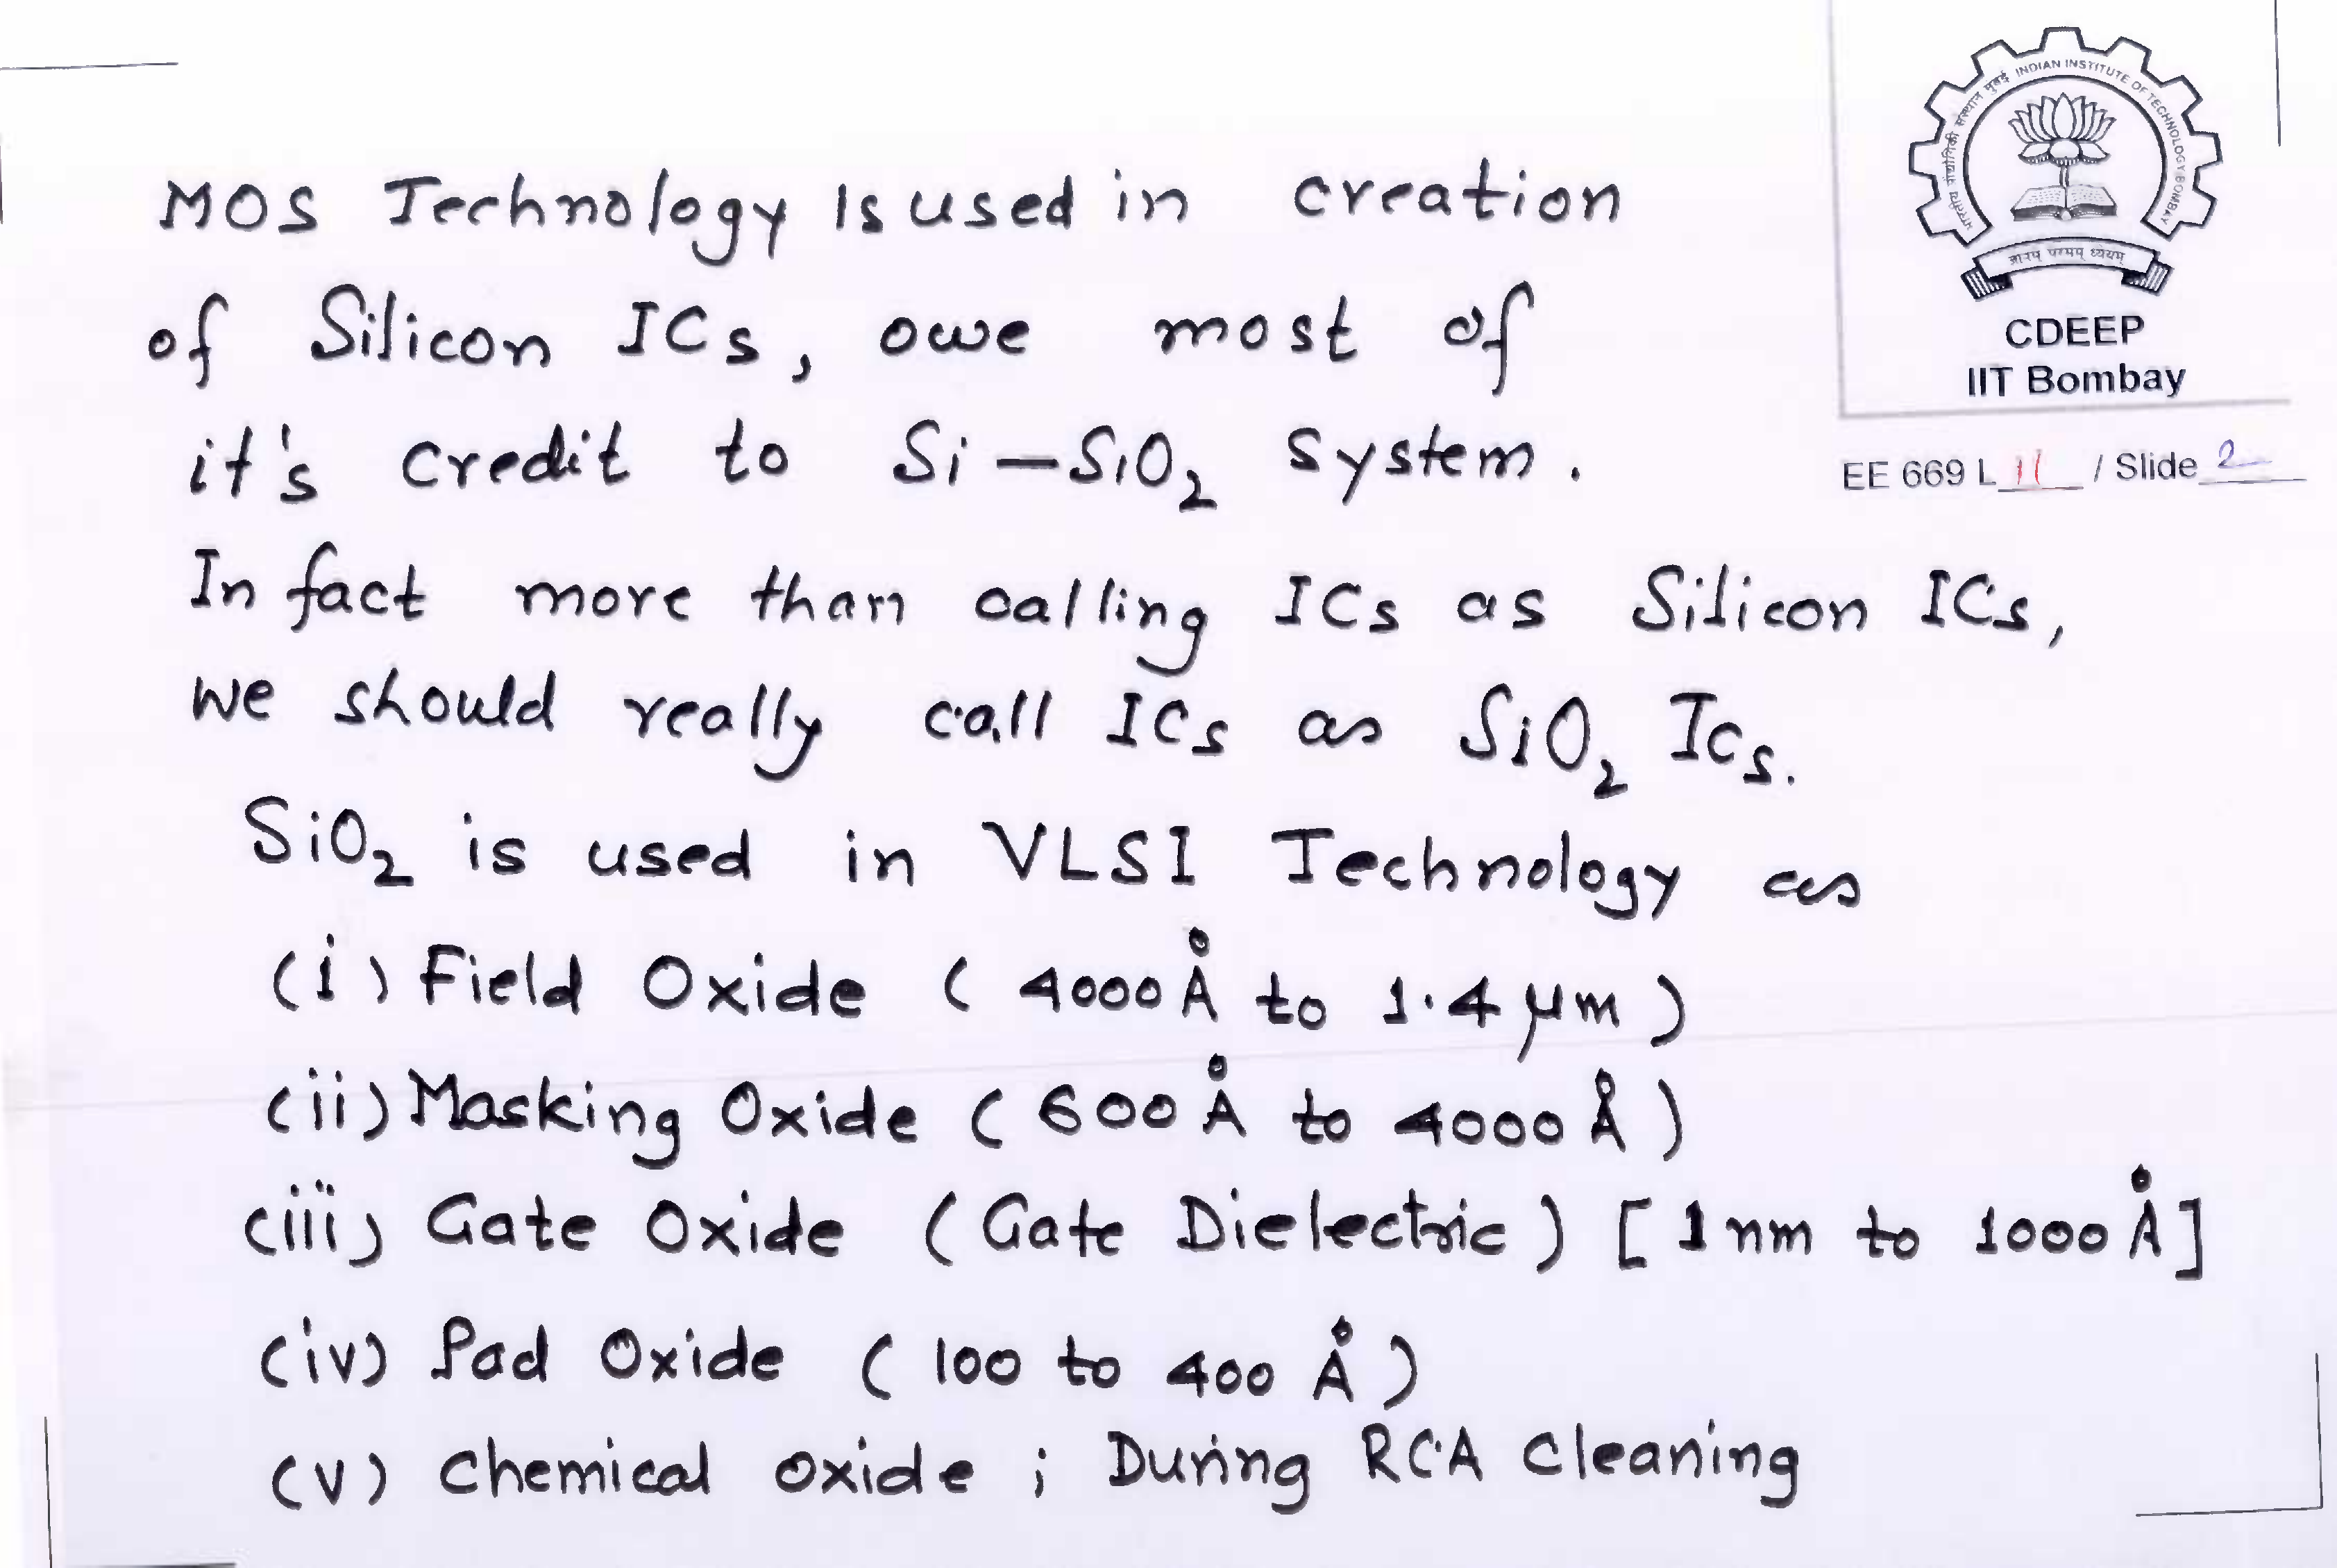 भारतीय प्रौद्योगिकी संस्थान मुंबई INDIAN INSTITUTE OF TECHNOLOGY BOMBAY
ज्ञानम् परमम् ध्येयम्
CDEEP
IIT Bombay
EE 669 L 11 / Slide 2
MOS Technology Is used in creation
of Silicon ICs, owe most of
it's credit to Si – SiO₂ system.
In fact more than calling ICs as Silicon ICs,
we should really call ICs as SiO₂ ICs.
SiO₂ is used in VLSI Technology as
(i) Field Oxide ( 4000 Å to 1.4 μm )
(ii) Masking Oxide ( 600 Å to 4000 Å )
(iii) Gate Oxide ( Gate Dielectric ) [ 1 nm to 1000 Å ]
(iv) Pad Oxide ( 100 to 400 Å )
(v) Chemical oxide ; During RCA cleaning